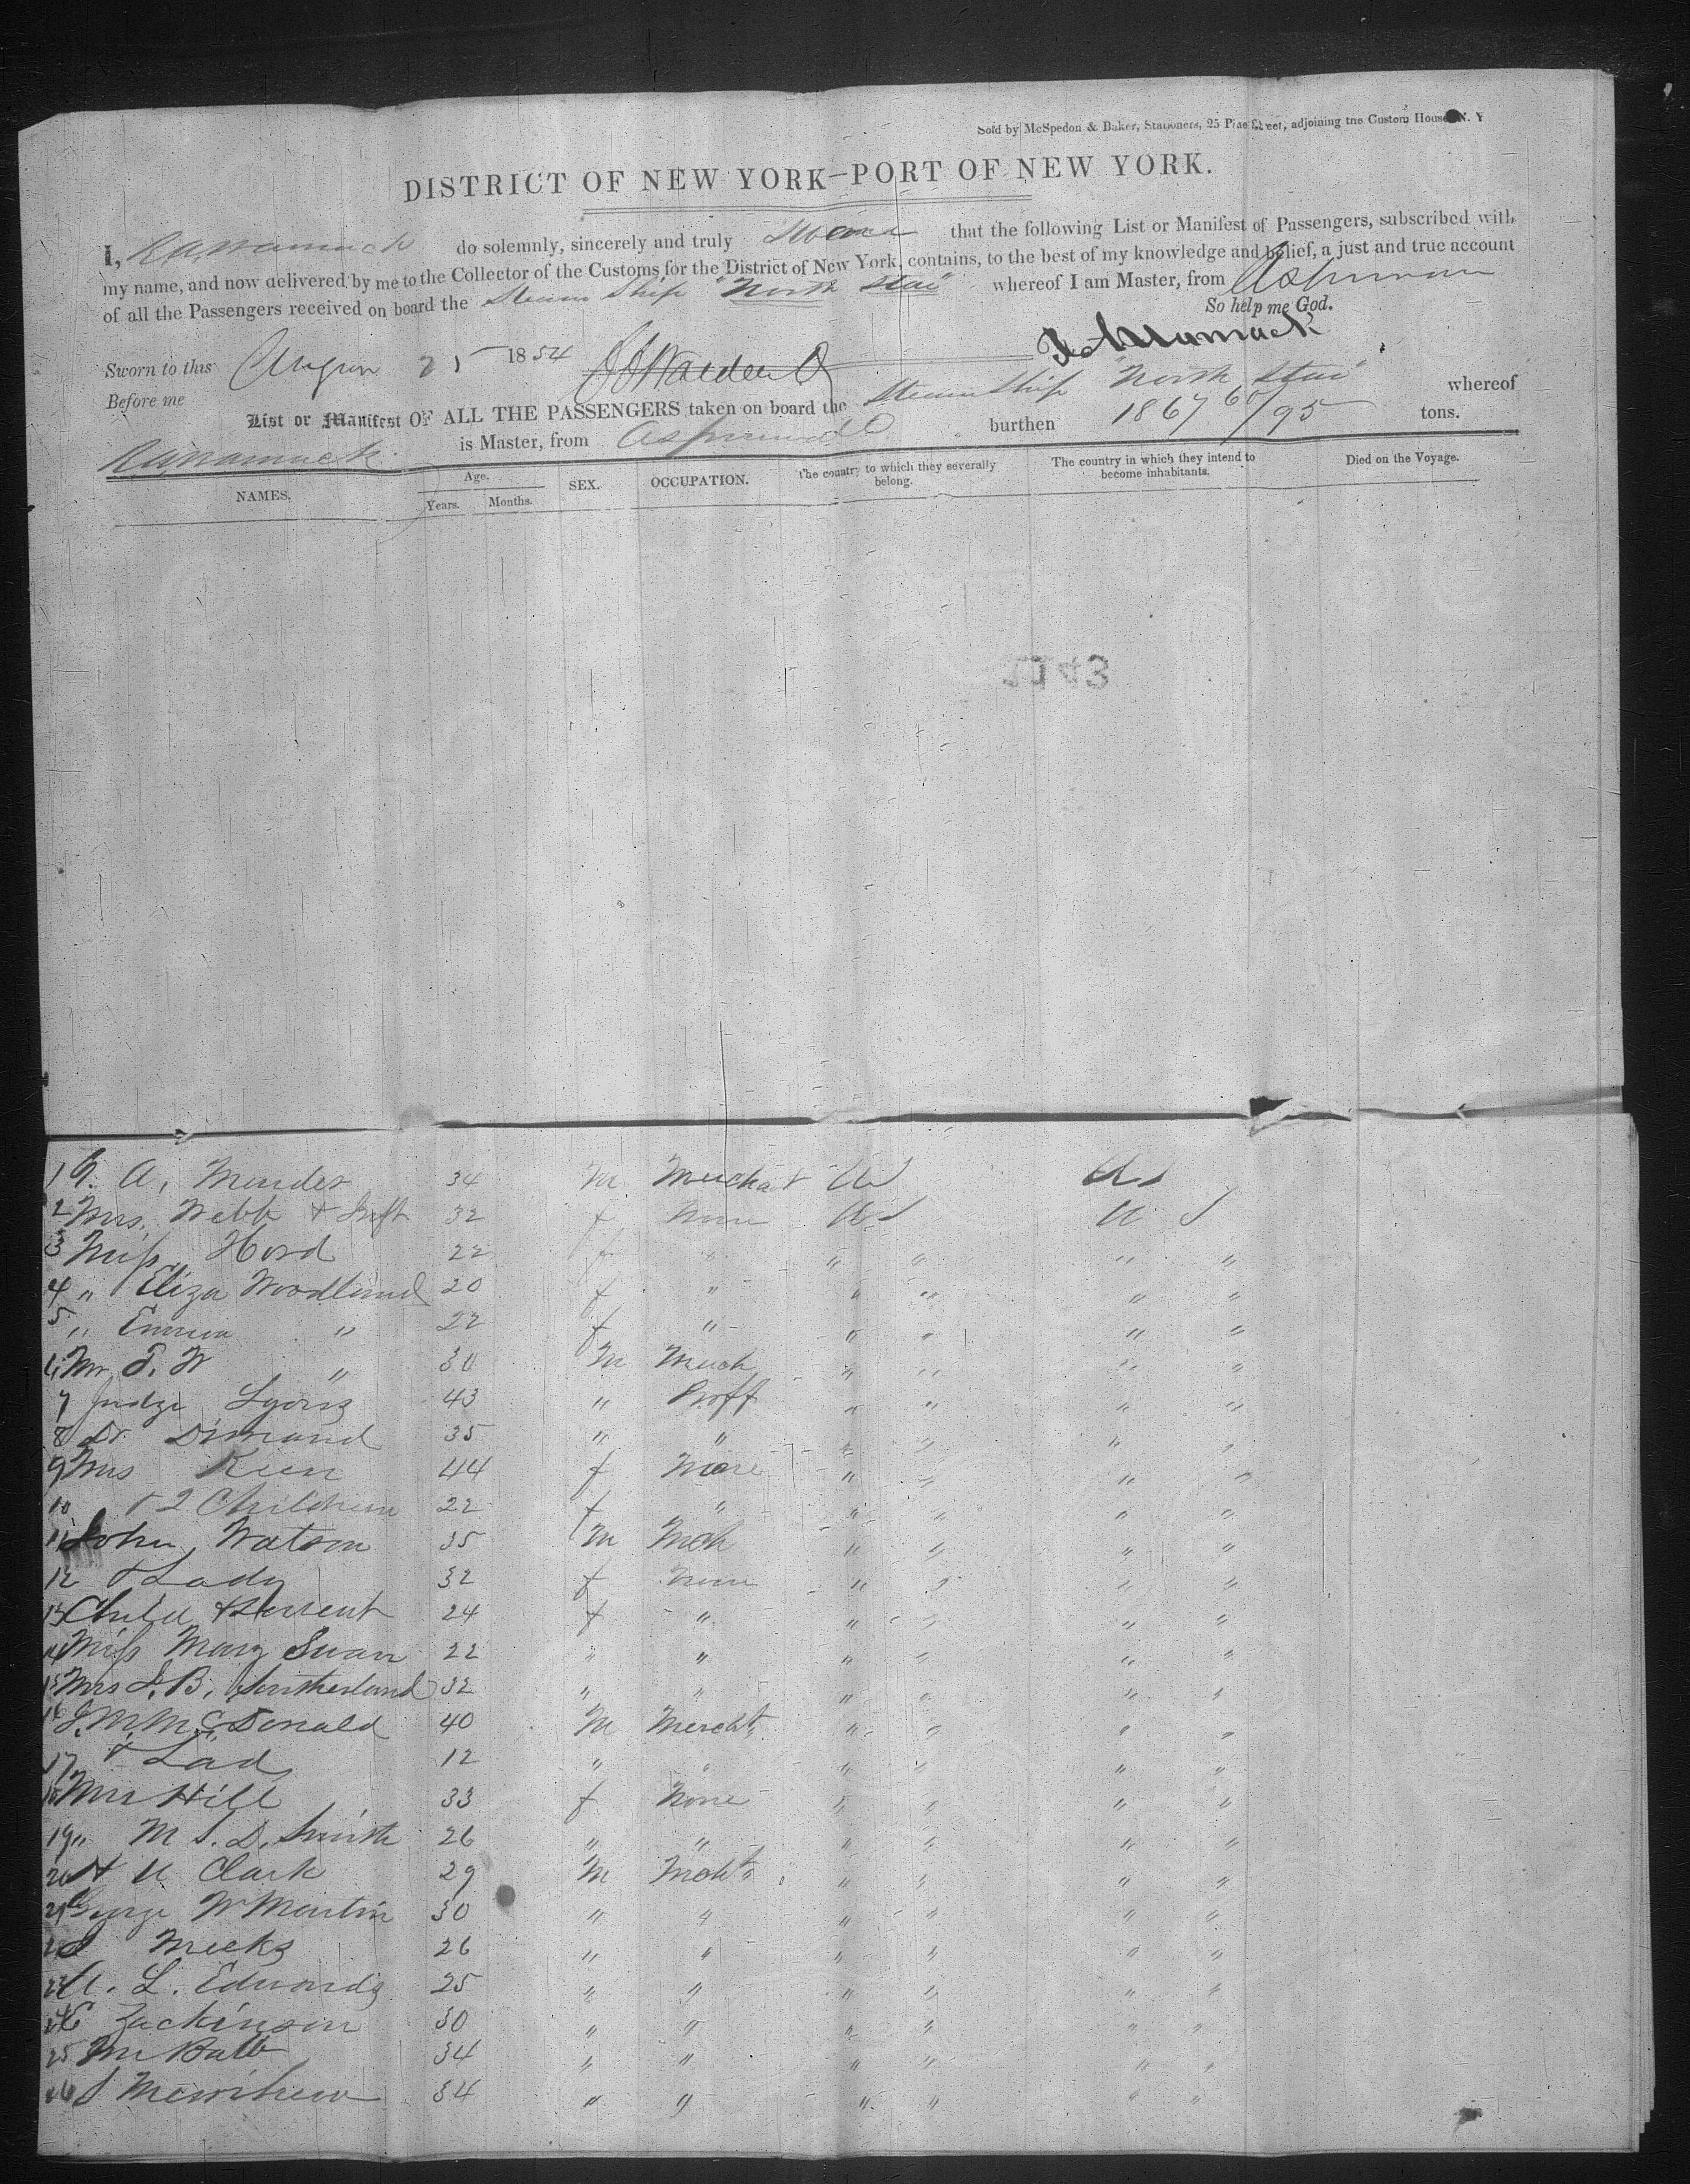 Sold by McSpedon & Baker, Stationers, 25 Pine Street, adjoining the Custom House N. Y
DISTRICT OF NEW YORK—PORT OF NEW YORK.
I, do solemnly, sincerely and truly Swear that the following List or Manifest of Passengers, subscribed with
my name, and now delivered by me to the Collector of the Customs for the District of New York, contains, to the best of my knowledge and belief, a just and true account
of all the Passengers received on board the Steam Ship "North Star" whereof I am Master, from Aspinwall
So help me God.
Sworn to this August 25 1854
Before me
List or Manifest OF ALL THE PASSENGERS taken on board the Steam Ship "North Star" whereof
is Master, from Aspinwall burthen 1867 60/95 tons.
NAMES. Age. Years. Months. SEX. OCCUPATION. The country to which they severally belong. The country in which they intend to become inhabitants. Died on the Voyage.
1143
1 A. Mendes 34 m Merchant US US
2 Mrs. Webb & Inft 32 f None US U S
3 Miss Hord 22 f " " " " "
4 " Eliza Woodland 20 f " " " " "
5 " Emma " 22 f " " " " "
6 Mr T. W " 30 M Merch " " " "
7 Judge Lyons 43 " Proff " " " "
8 Dr Dimond 35 " " " " " "
9 Mrs Keen 44 f None " " " "
10 & 2 Children 22 f " " " " "
11 John Watson 35 M Mch " " " "
12 & Lady 32 f None " " " "
13 Child & Servent 24 f " " " " "
14 Miss Mary Swan 22 " " " " " "
15 Mrs J. B. Sutherland 32 " " " " " "
16 J. M. McDonald 40 M Mercht " " " "
17 & Lad 12 " " " " " "
18 Mrs Hill 33 f None " " " "
19 " M S. D. Smith 26 " " " " " "
20 H U Clark 29 M Mcht " " " "
21 George W Martin 30 " " " " " "
22 Meeks 26 " " " " " "
23 A. L. Edwards 25 " " " " " "
24 E Jackinson 30 " " " " " "
25 Mr Balb 34 " " " " " "
26 S Merrihew 34 " " " " " "